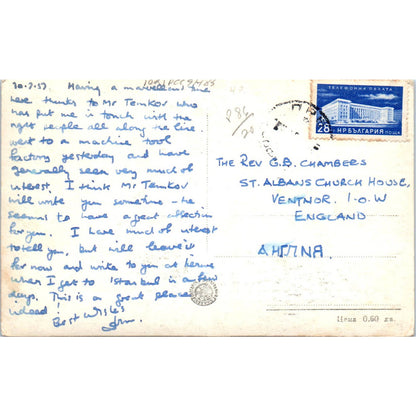 30.7.57. Having a marvellous time
here thanks to Mr Temkov who
has put me in touch with the
right people all along the line.
Went to a machine tool
factory yesterday and have
generally seen very much of
interest. I think Mr Temkov
will write you sometime - he
seems to have a great affection
for you. I have much of interest
to tell you, but will leave it
for now and write to you at home
when I get to Istanbul in a few
days. This is a great place
indeed!
Best Wishes
P86/
20
ТЕЛЕФОННА ПАЛАТА
28
Н·Р·БЪЛГАРИЯ
ПОЩА
THE REV G.B. CHAMBERS
ST. ALBANS CHURCH HOUSE,
VENTNOR. I-O-W
ENGLAND
Цена 0.60 лв.